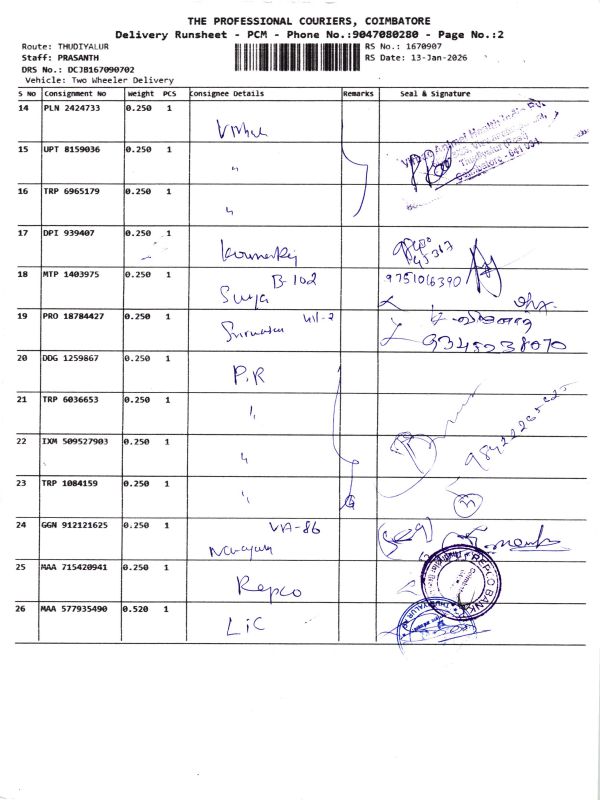 THE PROFESSIONAL COURIERS, COIMBATORE
Delivery Runsheet - PCM - Phone No.:9047080280 - Page No.:2
Route: THUDIYALUR
RS No.: 1670907
Staff: PRASANTH
RS Date: 13-Jan-2026
DRS No.: DCJB167090702
Vehicle: Two Wheeler Delivery
S No Consignment No Weight PCS Consignee Details Remarks Seal & Signature
14 PLN 2424733 0.250 1
15 UPT 8159036 0.250 1 "
Coimbatore - 641 034.
16 TRP 6965179 0.250 1 "
17 DPI 939407 0.250 1
18 MTP 1403975 0.250 1 Surya B-102 9751016390
19 PRO 18784427 0.250 1 9345238070
20 DDG 1259867 0.250 1 P.R
21 TRP 6036653 0.250 1 "
22 IXM 509527903 0.250 1 "
23 TRP 1084159 0.250 1 "
24 GGN 912121625 0.250 1 VA-86
25 MAA 715420941 0.250 1 Repco REPCO BANK
26 MAA 577935490 0.520 1 LIC THUDIYALUR